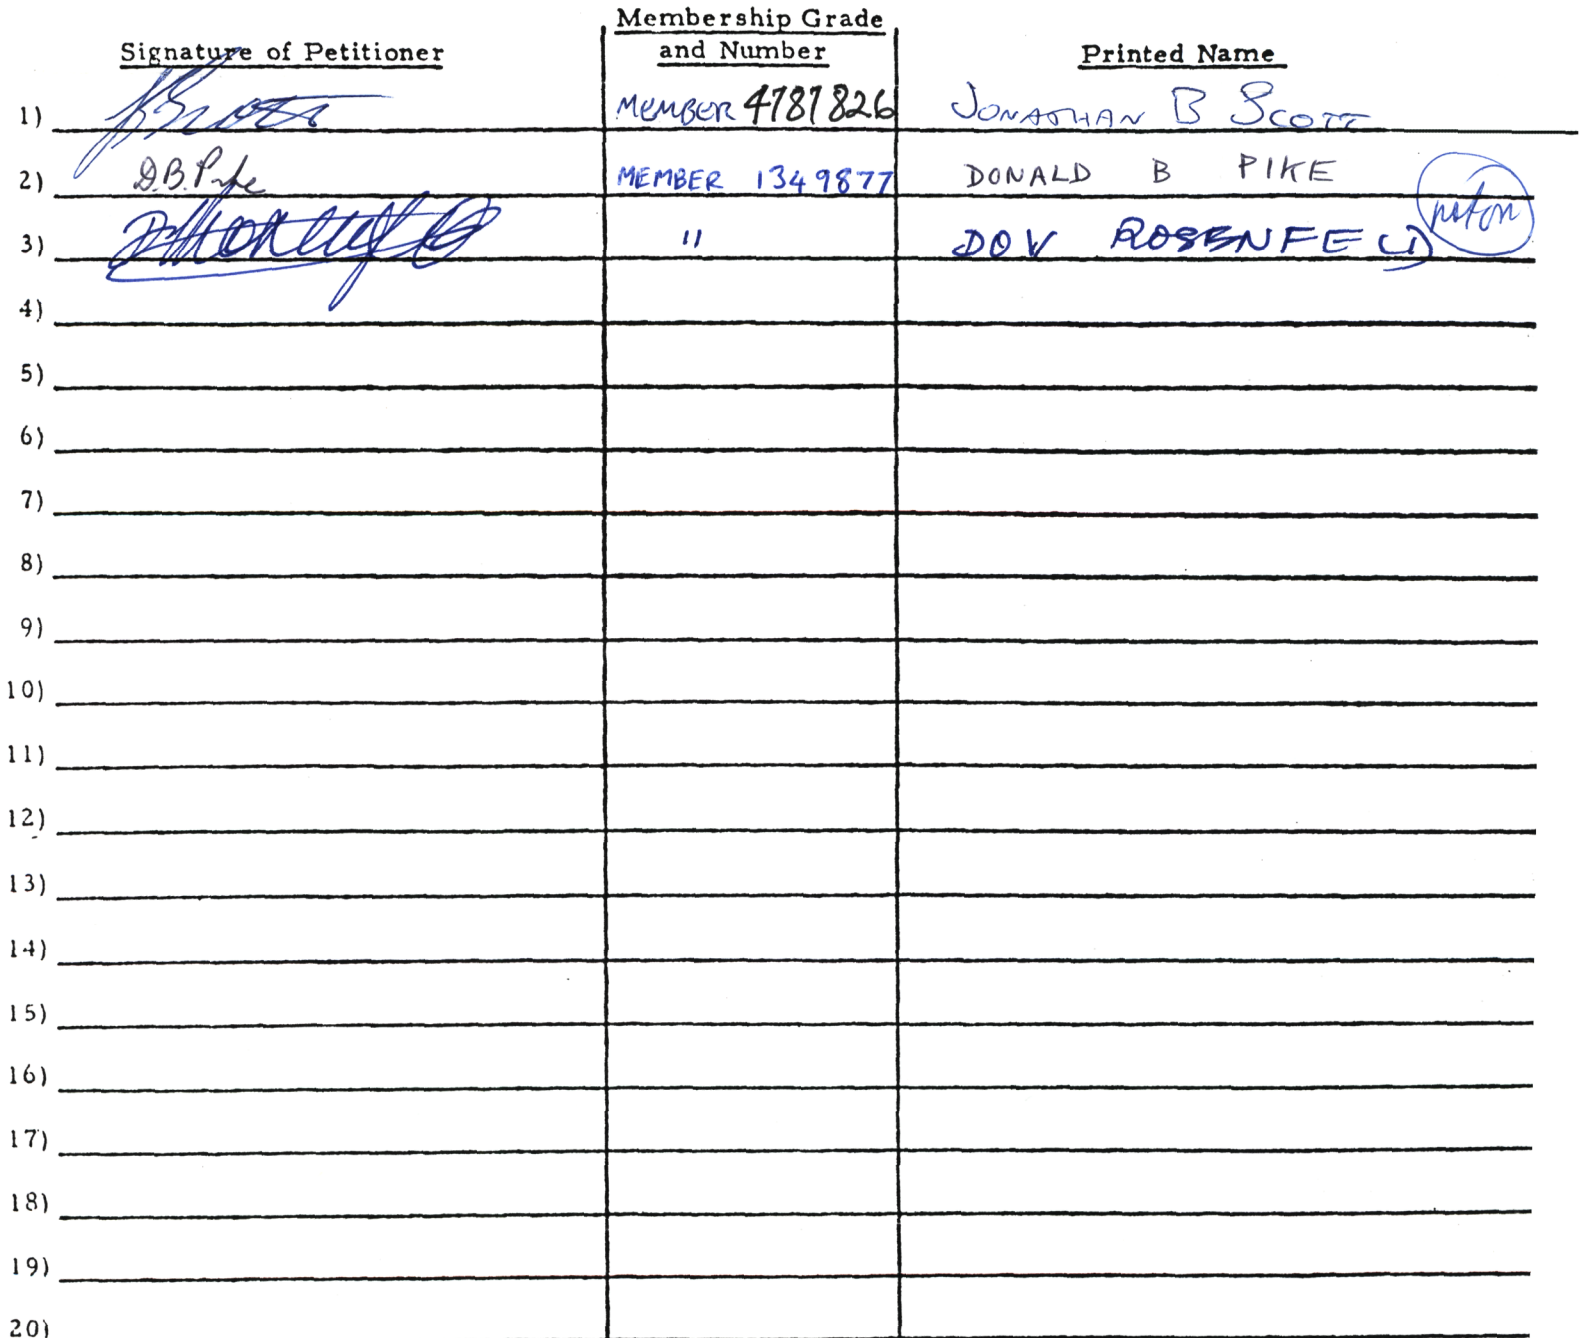 Signature of Petitioner Membership Grade and Number Printed Name
1) MEMBER 4787826 JONATHAN B SCOTT
2) D.B. Pike MEMBER 1349877 DONALD B PIKE
3) " DOV ROSENFELD
4)
5)
6)
7)
8)
9)
10)
11)
12)
13)
14)
15)
16)
17)
18)
19)
20)